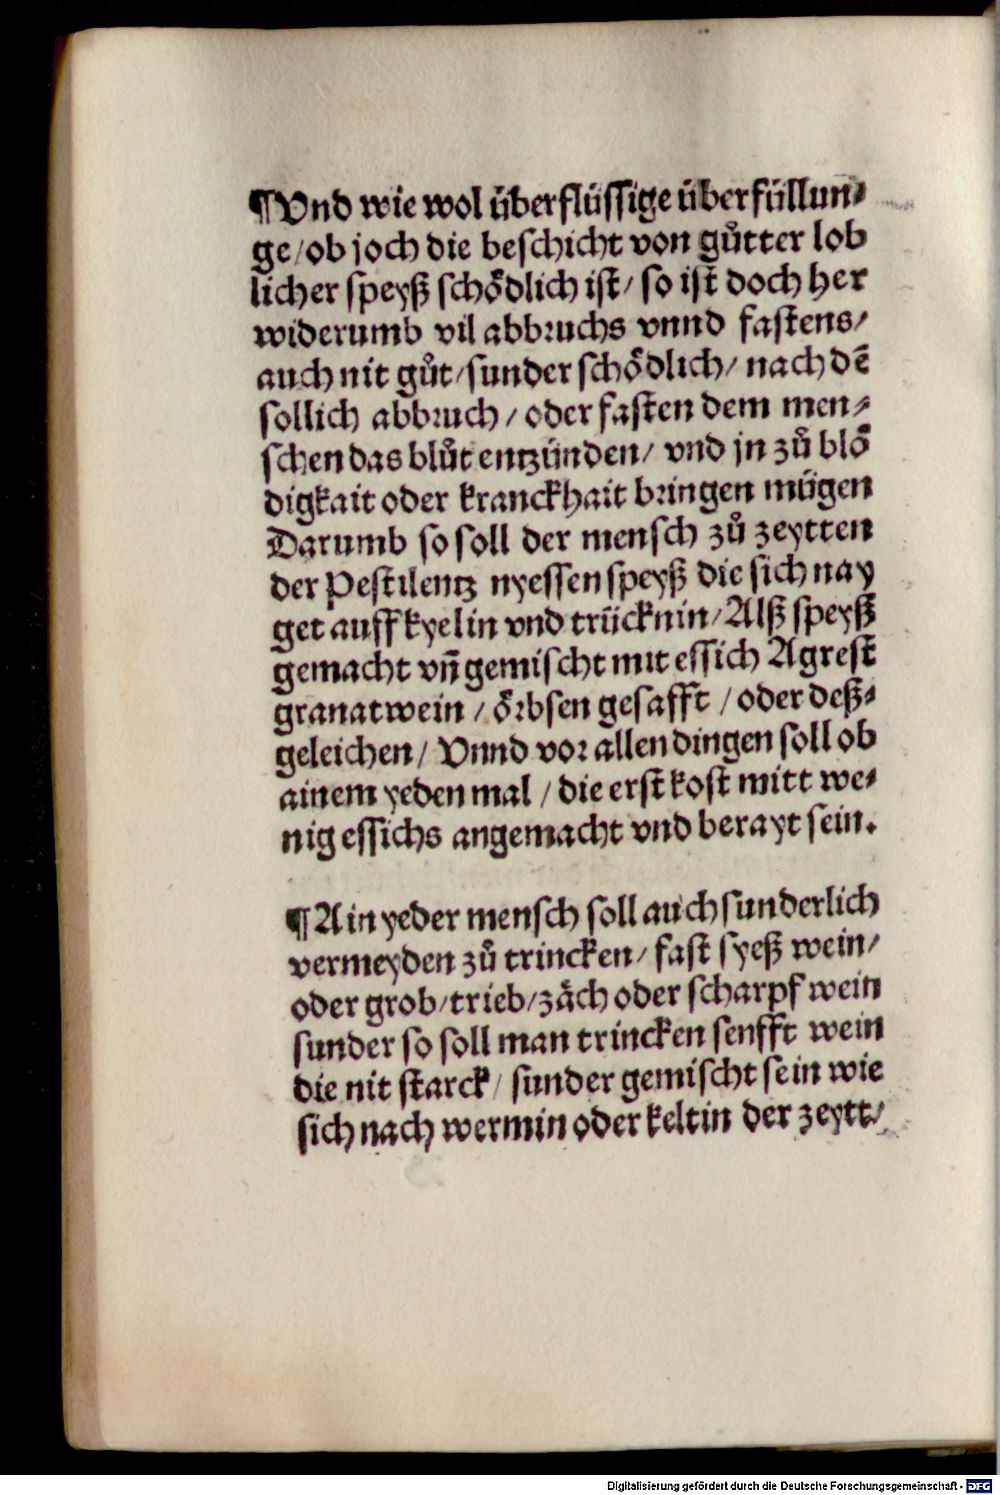 ¶Vnd wie wol überflüssige überfüllun⸗
ge/ob joch die beschicht von gůtter lob
licher speyß schoͤdlich ist/ so ist doch her
widerumb vil abbruchs vnnd fastens/
auch nit gůt/sunder schoͤdlich/ nach dē
sollich abbruch/ oder fasten dem men⸗
schen das blůt entzünden/ vnd jn zů bloͤ
digkait oder kranckhait bringen mügen
Darumb so soll der mensch zů zeytten
der Pestilentz nyessen speyß die sich nay
get auff kyelin vnd trücknin/Alß speyß
gemacht vñ gemischt mit essich Agrest
granatwein/ oͤrbsen gesafft/ oder deß⸗
geleichen/ Vnnd vor allen dingen soll ob
ainem yeden mal/ die erst kost mitt we⸗
nig essichs angemacht vnd berayt sein.
¶Ain yeder mensch soll auch sunderlich
vermeyden zů trincken/ fast syeß wein/
oder grob/trieb/zaͤch oder scharpf wein
sunder so soll man trincken senfft wein
die nit starck/ sunder gemischt sein wie
sich nach wermin oder keltin der zeytt/
Digitalisierung gefördert durch die Deutsche Forschungsgemeinschaft - DFG